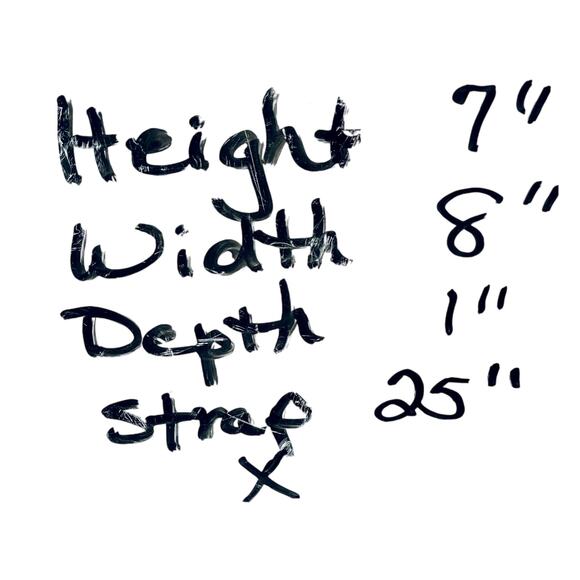 Height 7"
Width 8"
Depth 1"
Strap 25"
X